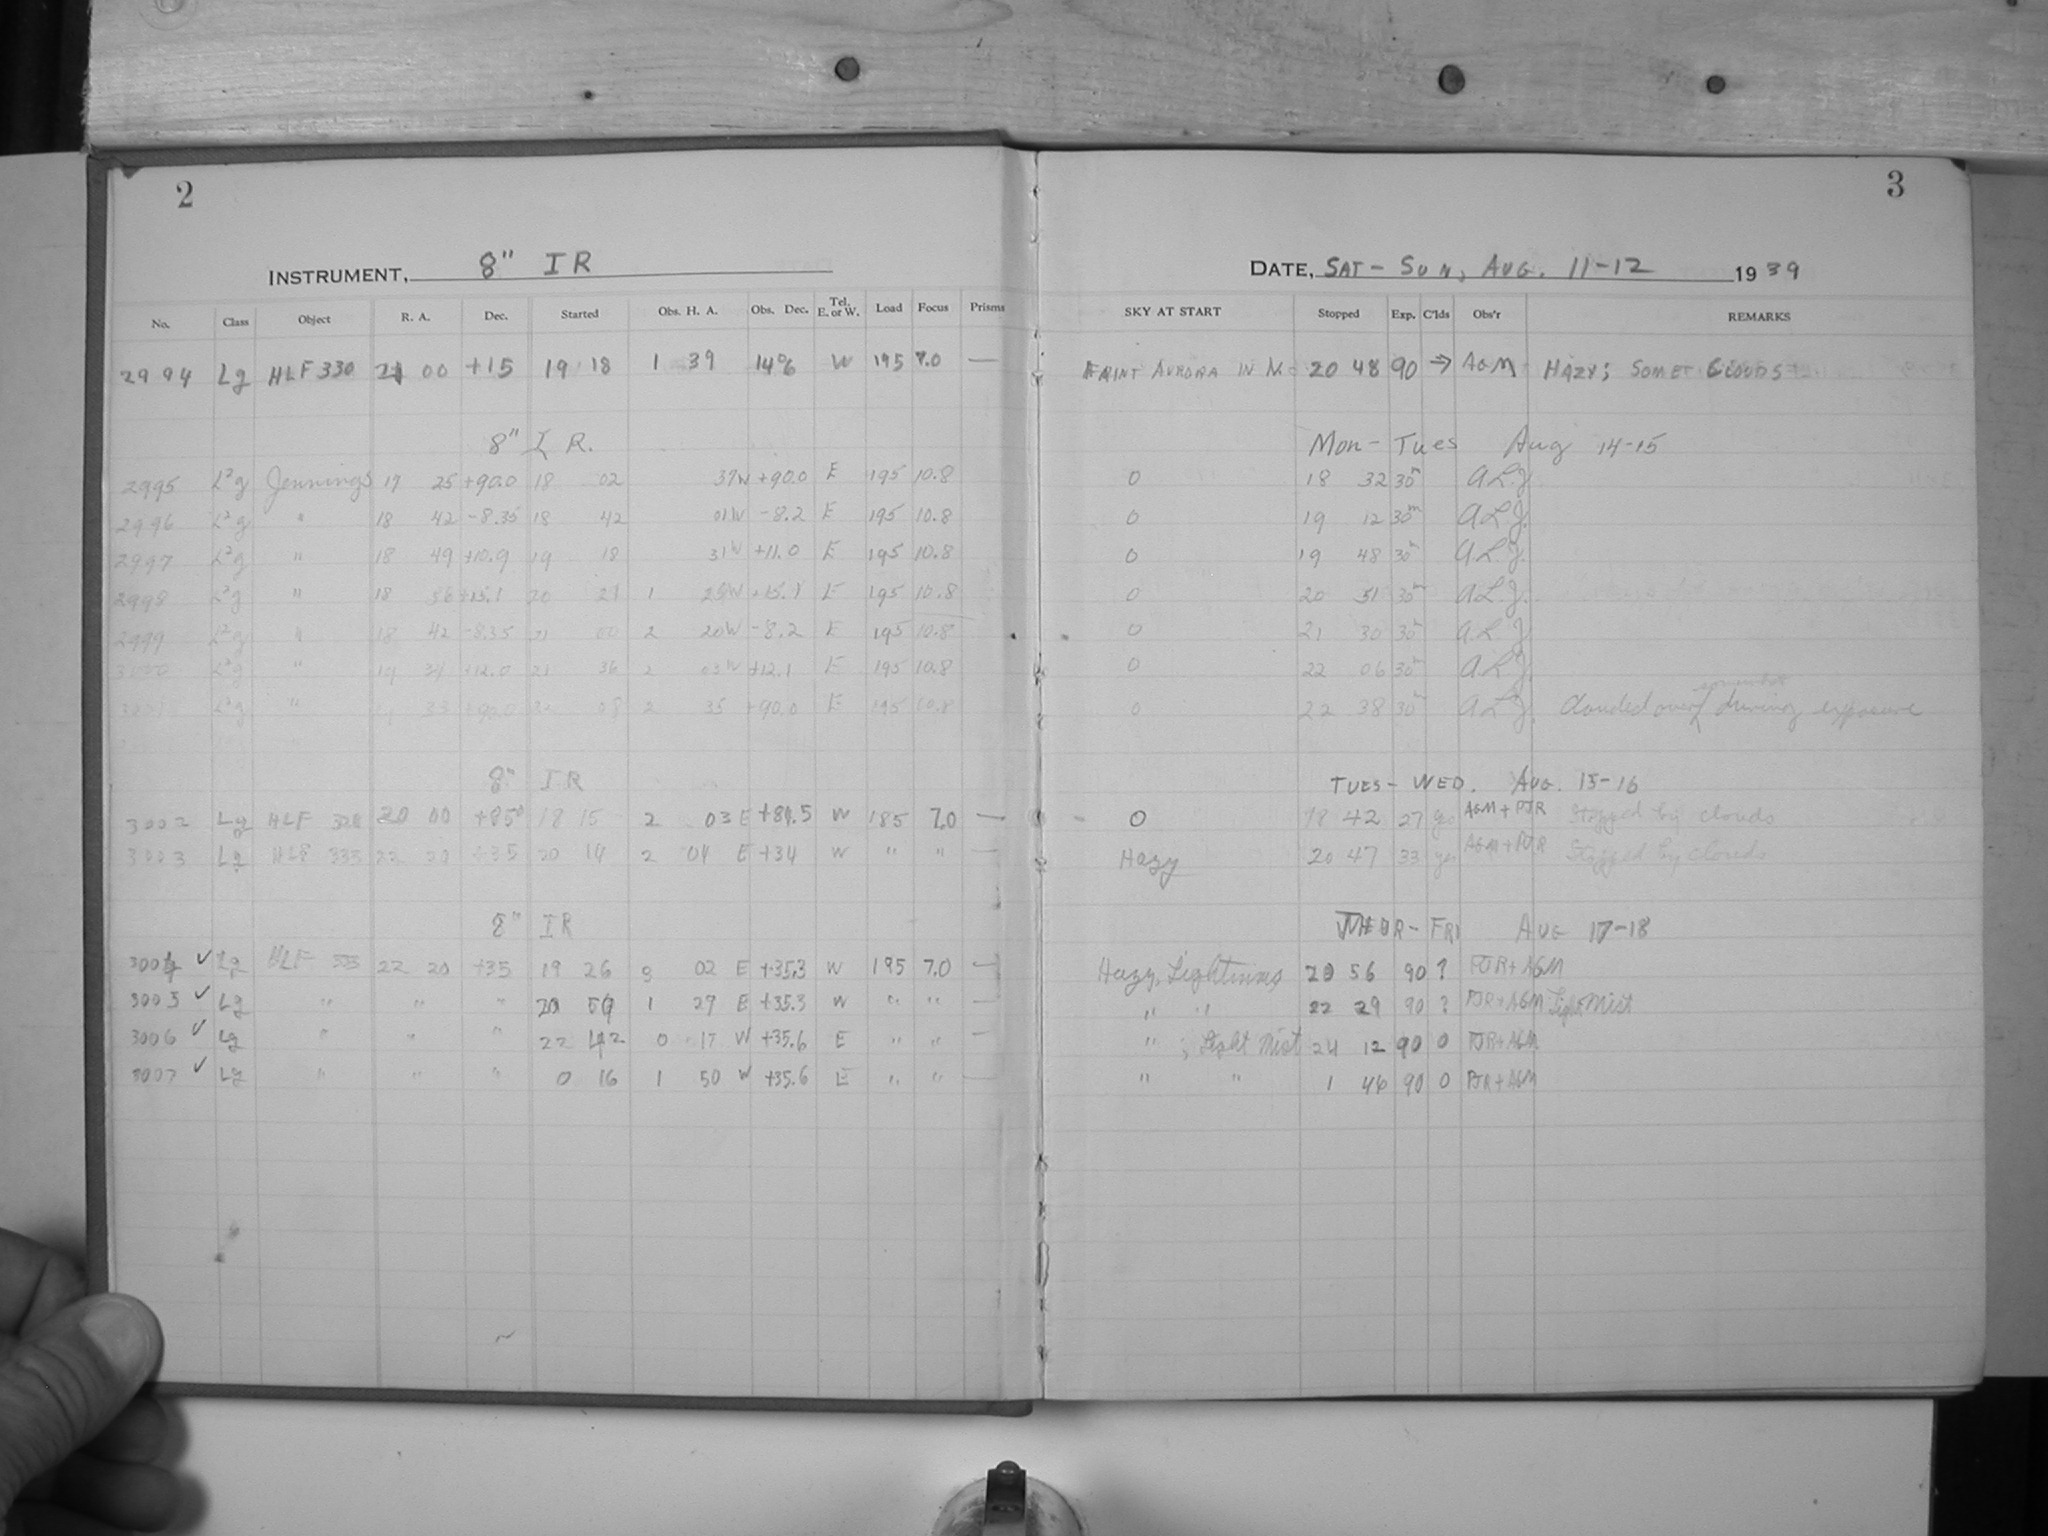 2
INSTRUMENT, 8" IR
No. Class Object R. A. Dec. Started Obs. H. A. Obs. Dec. Tel. E. or W. Load Focus Prisms
2994 Lg HLF 330 21 00 +15 19 18 1 39 W 195 7.0 —
8" I R.
2995 L²g Jennings 17 25 +90.0 18 02 37W +90.0 E 195 10.8
2996 L²g " 18 42 -8.35 18 42 01W -8.2 E 195 10.8
2997 L²g " 18 49 +10.9 19 18 31W +11.0 E 195 10.8
2998 L²g " 18 56 +15.1 20 21 1 E 195 10.8
2999 L²g " 18 42 -8.35 21 00 2 20W -8.2 E 195 10.8
3000 L²g " 19 +12.0 21 36 2 03W +12.1 E 195 10.8
3001 L²g " +90.0 08 2 35 +90.0 E 195 10.8
8" IR
3002 Lg HLF 20 00 +85° 18 15 2 03 E +84.5 W 185 7.0 —
3003 Lg HLF 333 22 20 +35 20 14 2 04 E +34 W " " —
8" IR
3004 ✓ Lg HLF 333 22 20 +35 19 26 3 02 E +35.3 W 195 7.0 —
3005 ✓ Lg " " " 20 59 1 27 E +35.3 W " " —
3006 ✓ Lg " " " 22 42 0 17 W +35.6 E " " —
3007 ✓ Lg " " " 0 16 1 50 W +35.6 E " " —
3
DATE, SAT - SUN, AUG. 11-12 1939
SKY AT START Stopped Exp. C'lds Obs'r REMARKS
FAINT AURORA IN N. 20 48 90 → AGM HAZY; SOME CLOUDS
Mon - Tues Aug 14-15
0 18 32 30m A.L.J.
0 19 12 30m A.L.J.
0 19 48 30m A.L.J.
0 20 51 30m A.L.J.
0 21 30 30m A.L.J.
0 22 06 30m A.L.J.
0 22 38 30m A.L.J. Clouded over somewhat during exposure
TUES - WED. AUG. 15-16
0 18 42 27 yes AGM + PJR Stopped by clouds
Hazy 20 47 33 yes AGM + PJR Stopped by clouds
THUR - FRI AUG 17-18
Hazy, Lightning 20 56 90 ? PJR + AGM
" " 22 29 90 ? PJR + AGM Light Mist
" ; Light Mist 24 12 90 0 PJR + AGM
" " 1 46 90 0 PJR + AGM